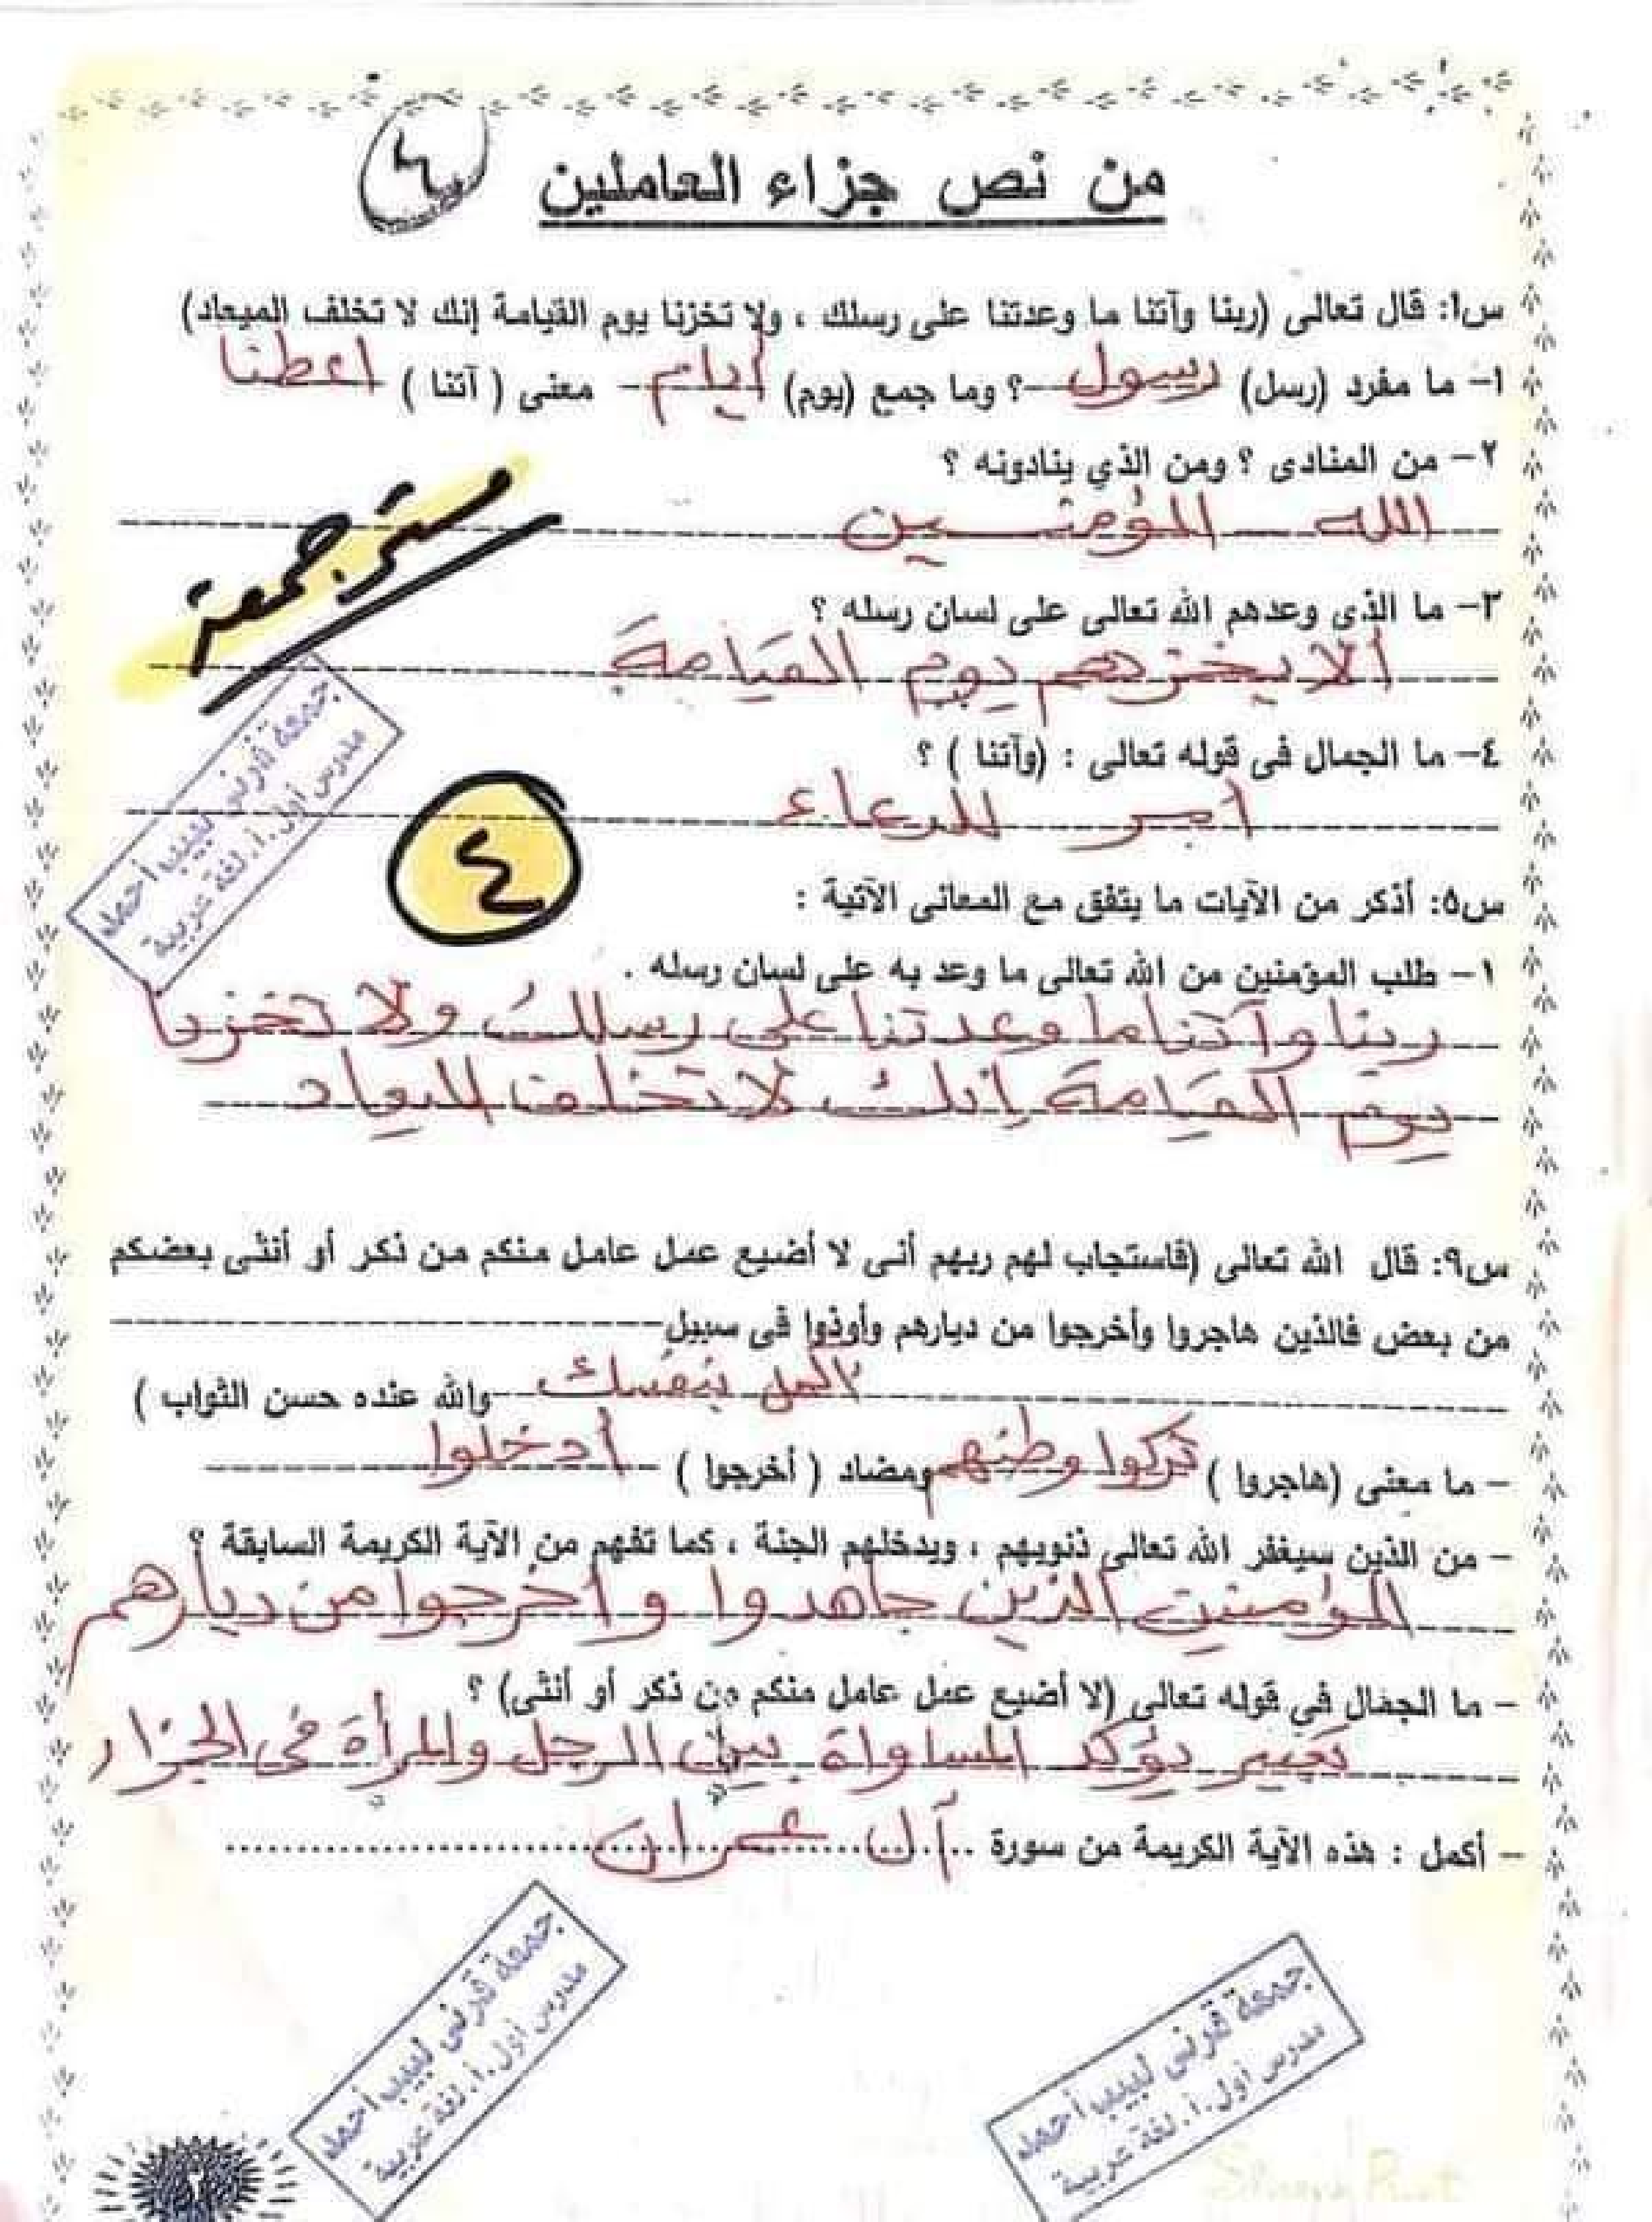 من نص جزاء العاملين
٤
س١: قال تعالى (ربنا وآتنا ما وعدتنا على رسلك ، ولا تخزنا يوم القيامة إنك لا تخلف الميعاد)
١- ما مفرد (رسل) رسول ؟ وما جمع (يوم) أيام - معنى ( آتنا ) اعطنا
٢- من المنادى ؟ ومن الذي ينادونه ؟
الله المؤمنين
مستر جمعة
٣- ما الذى وعدهم الله تعالى على لسان رسله ؟
ألا يخزيهم يوم القيامة
جمعة قرنى لبيب أحمد
مدرس أول.أ.لغة عربية
٤- ما الجمال فى قوله تعالى : (وآتنا ) ؟
أمر للدعاء
٤
س٥: أذكر من الآيات ما يتفق مع المعانى الآتية :
١- طلب المؤمنين من الله تعالى ما وعد به على لسان رسله .
ربنا وآتنا ما وعدتنا على رسلك ولا تخزنا
يوم القيامة إنك لا تخلف الميعاد
س٩: قال الله تعالى (فاستجاب لهم ربهم أنى لا أضيع عمل عامل منكم من ذكر أو أنثى بعضكم
من بعض فالذين هاجروا وأخرجوا من ديارهم وأوذوا فى سبيل
أكمل بنفسك والله عنده حسن الثواب )
- ما معنى (هاجروا ) تركوا وطنهم ومضاد ( أخرجوا ) أدخلوا
- من الذين سيغفر الله تعالى ذنوبهم ، ويدخلهم الجنة ، كما تفهم من الآية الكريمة السابقة ؟
المؤمنين الذين جاهدوا و أخرجوا من ديارهم
- ما الجمال فى قوله تعالى (لا أضيع عمل عامل منكم من ذكر أو أنثى) ؟
تعبير يؤكد المساواة بين الرجل والمرأة فى الجزاء
- أكمل : هذه الآية الكريمة من سورة .. آل عمران
جمعة قرنى لبيب أحمد
مدرس أول.أ.لغة عربية
جمعة قرنى لبيب أحمد
مدرس أول.أ.لغة عربية